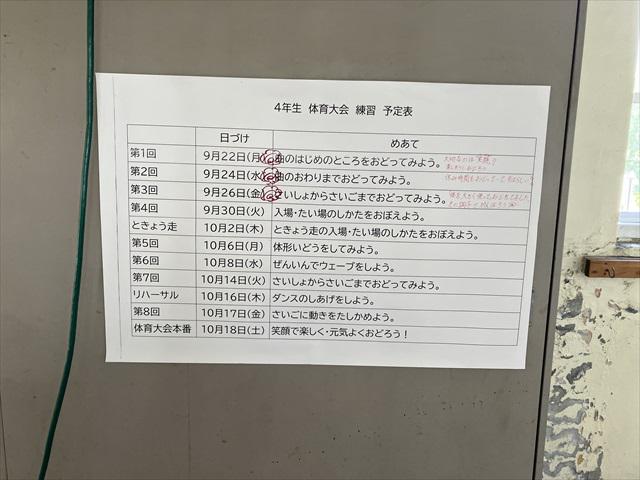 4年生 体育大会 練習 予定表
日づけ めあて
第1回 9月22日(月) 曲のはじめのところをおどってみよう。
第2回 9月24日(水) 曲のおわりまでおどってみよう。
第3回 9月26日(金) さいしょからさいごまでおどってみよう。
第4回 9月30日(火) 入場・たい場のしかたをおぼえよう。
ときょう走 10月2日(木) ときょう走の入場・たい場のしかたをおぼえよう。
第5回 10月6日(月) 体形いどうをしてみよう。
第6回 10月8日(水) ぜんいんでウェーブをしよう。
第7回 10月14日(火) さいしょからさいごまでおどってみよう。
リハーサル 10月16日(木) ダンスのしあげをしよう。
第8回 10月17日(金) さいごに動きをたしかめよう。
体育大会本番 10月18日(土) 笑顔で楽しく・元気よくおどろう!